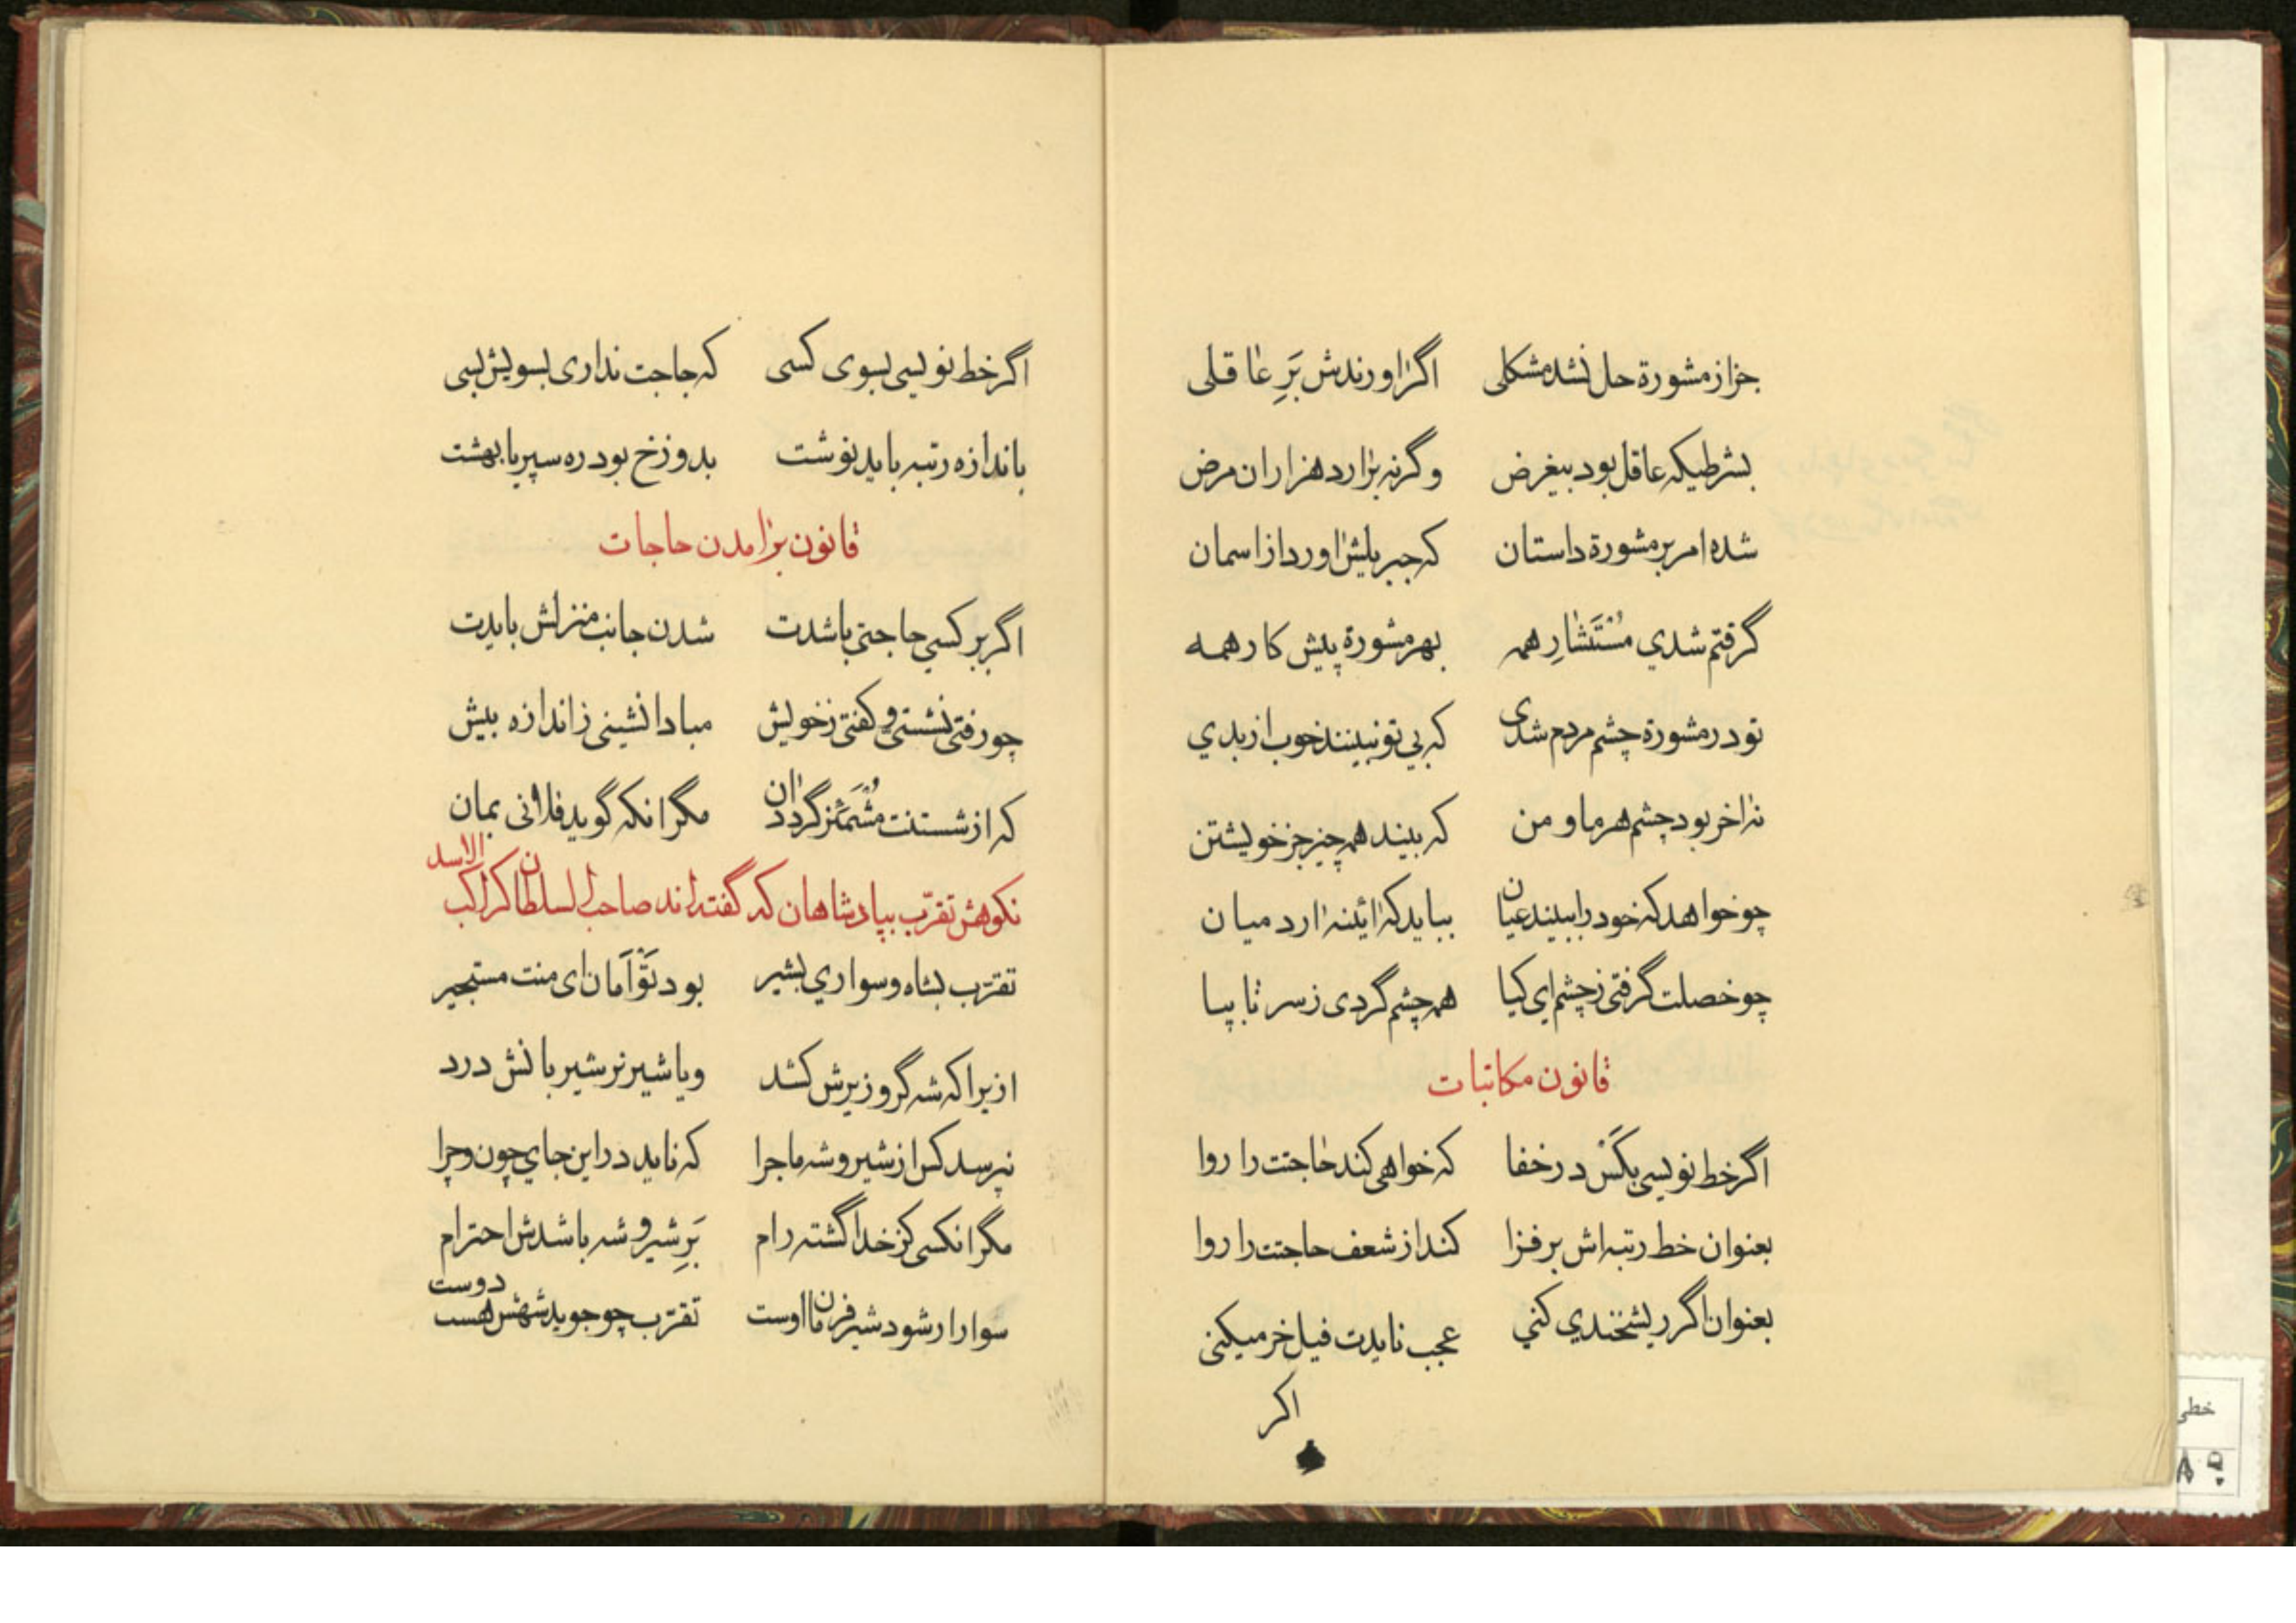 جز از مشورة حل نشد مشکلی اگر اورندش بَرِ عاقلی
بشرطیکه عاقل بود بیغرض وگرنه براردهزاران مرض
شده امر بر مشورة داستان که جبریلیش اورد از اسمان
گرفتم شدي مُسْتَشارِ همه بهر مشورة پیش کار همه
تو در مشورة چشم مردم شدی که بی تو نبینند خوب از بدي
نه اخر بود چشم هر ما و من که بیند همه چیز جز خویشتن
چو خواهد که خود را ببیند عیان بباید که ائینه ارد میان
چو خصلت گرفتی ز چشم ای کیا همه چشم گردی ز سر تا بپا
قانون مکاتبات
اگر خط نویسی بکَسْ در خفا که خواهی کند حاجتت را روا
بعنوان خط رتبه اش بر فزا کند از شعف حاجتت را روا
بعنوان اگر ریشخندي کني عجب نایدت فیل خر میکنی
اکر
اگر خط نویسی بسوی کسی که حاجت نداری بسویش بسی
باندازه رتبه باید نوشت بدوزخ بود ره سپر یا بهشت
قانون برامدن حاجات
اگر بر کسي حاجتی باشدت شدن جانب منزلش بایدت
چو رفتی نشستی و گفتی ز خویش مبادا نشینی ز اندازه بیش
که از شستنت مُشْمَئِز گردد ان مگر انکه گوید فلانی بمان
نکوهش تقرّب بپادشاهان که گفته اند صاحب السلطان کراکب الاسد
تقرّب بشاه و سواري بشیر بود تَوْأَمان ای منت مستجیر
ازیرا که شه گر وزیرش کشد ویا شیر نر شیر بانش درد
نپرسد کس از شیر و شه ماجرا که ناید در این جاي چون و چرا
مگر انکسی کز خدا گشته رام بَرِ شیر و شه باشدش احترام
سوار ار شود شیر فرمان اوست تقرّب چو جوید شهش هست دوست
خطی